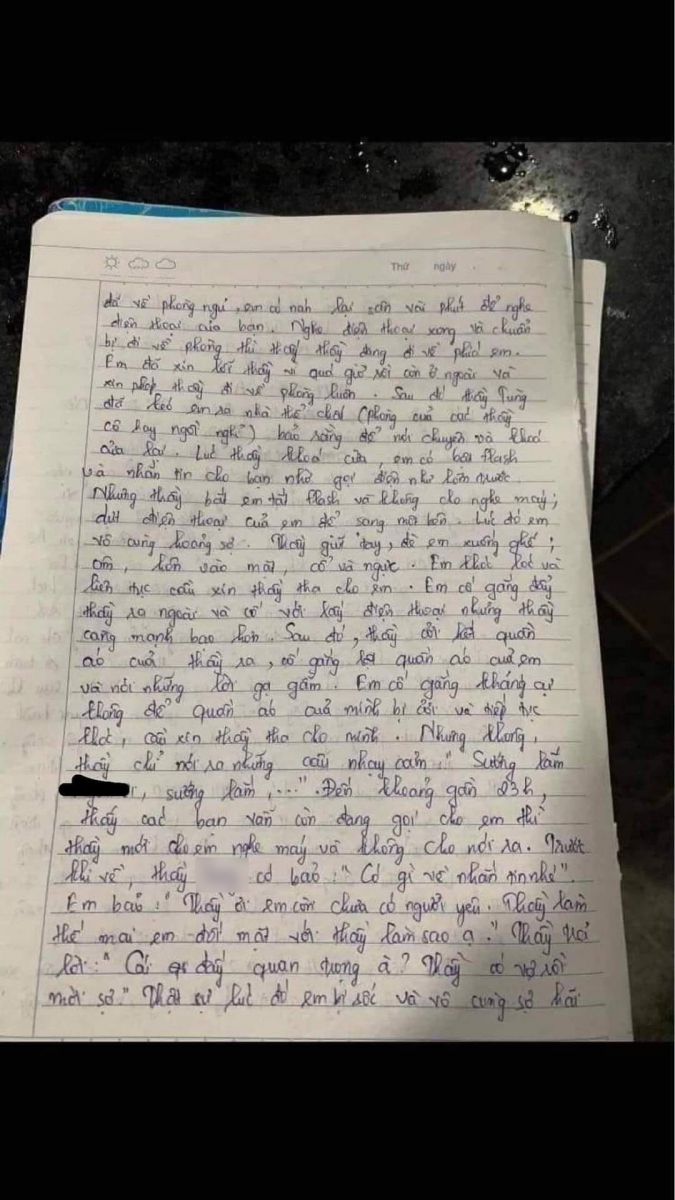 Thứ ngày
đã về phòng ngủ, em có nán lại vài phút để nghe
điện thoại của bạn. Nghe điện thoại xong và chuẩn
bị đi về phòng thì thấy thầy đang đi về phía em.
Em đã xin lỗi thầy vì quá giờ rồi còn ở ngoài và
xin phép thầy đi về phòng luôn. Sau đó thầy Tùng
đã kéo em ra nhà thể chất (phòng của các thầy
cô hay ngồi nghỉ) bảo rằng để nói chuyện và khoá
cửa lại. Lúc thầy khoá cửa, em có bật flash
và nhắn tin cho bạn nhờ gọi điện như lần trước.
Nhưng thầy bắt em tắt flash và không cho nghe máy;
dứt điện thoại của em để sang một bên. Lúc đó em
vô cùng hoảng sợ. Thầy giữ tay, đè em xuống ghế;
ôm, hôn vào mặt, cổ và ngực. Em khóc lóc và
liên tục cầu xin thầy tha cho em. Em cố gắng đẩy
thầy ra ngoài và cố với lấy điện thoại nhưng thầy
càng mạnh bạo hơn. Sau đó, thầy cởi hết quần
áo của thầy ra, cố gắng quần áo của em
và nói những lời gạ gẫm. Em cố gắng kháng cự
không để quần áo của mình bị cởi và tiếp tục
khóc, cầu xin thầy tha cho mình. Nhưng không,
thầy chỉ nói ra những câu nhạy cảm: " Sướng lắm
, sướng lắm, ...". Đến khoảng gần 23h,
thấy các bạn vẫn còn đang gọi cho em thì
thầy mới cho em nghe máy và không cho nói ra. Trước
khi về, thầy có bảo: " Có gì về nhắn tin nhé".
Em bảo: " Thầy ơi em còn chưa có người yêu. Thầy làm
thế mai em đối mặt với thầy làm sao ạ." Thầy trả
lời: " Cái đấy quan trọng à? Thầy có vợ rồi
mới sợ." Thật sự lúc đó em bị sốc và vô cùng sợ hãi